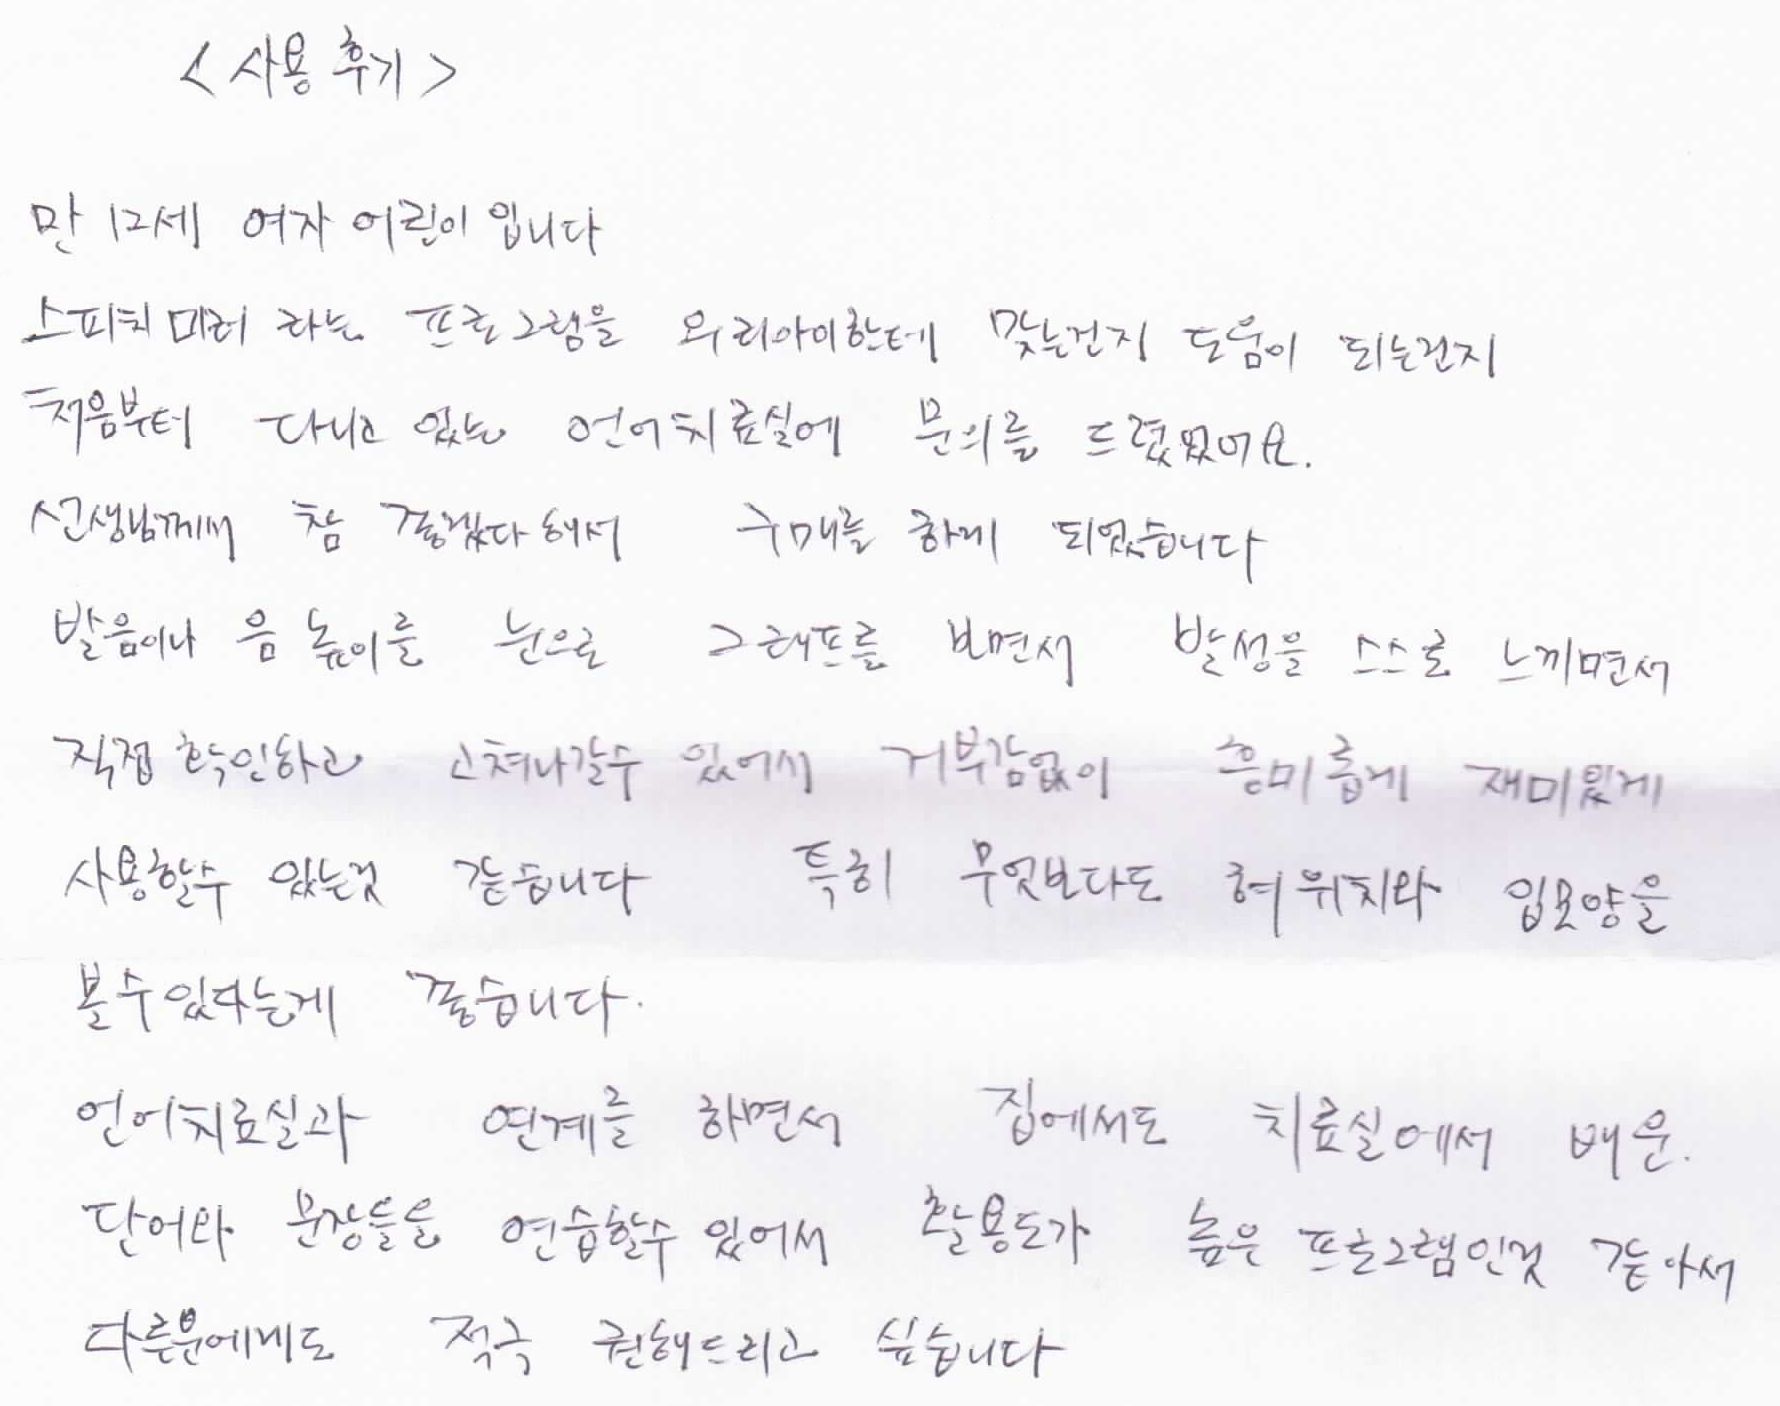 < 사용 후기 >
만 12세 여자 어린이 입니다
스피치 미러 라는 프로그램을 우리아이한테 맞는건지 도움이 되는건지
처음부터 다니고 있는 언어치료실에 문의를 드렸었어요.
선생님께서 참 좋겠다 해서 구매를 하게 되었습니다
발음이나 음 높이를 눈으로 그래프를 보면서 발성을 스스로 느끼면서
직접 확인하고 고쳐나갈수 있어서 거부감없이 흥미롭게 재미있게
사용할수 있는것 같습니다 특히 무엇보다도 혀 위치와 입모양을
볼수있다는게 좋습니다.
언어치료실과 연계를 하면서 집에서도 치료실에서 배운.
단어와 문장들을 연습할수 있어서 활용도가 높은 프로그램인것 같아서
다른분에게도 적극 권해드리고 싶습니다